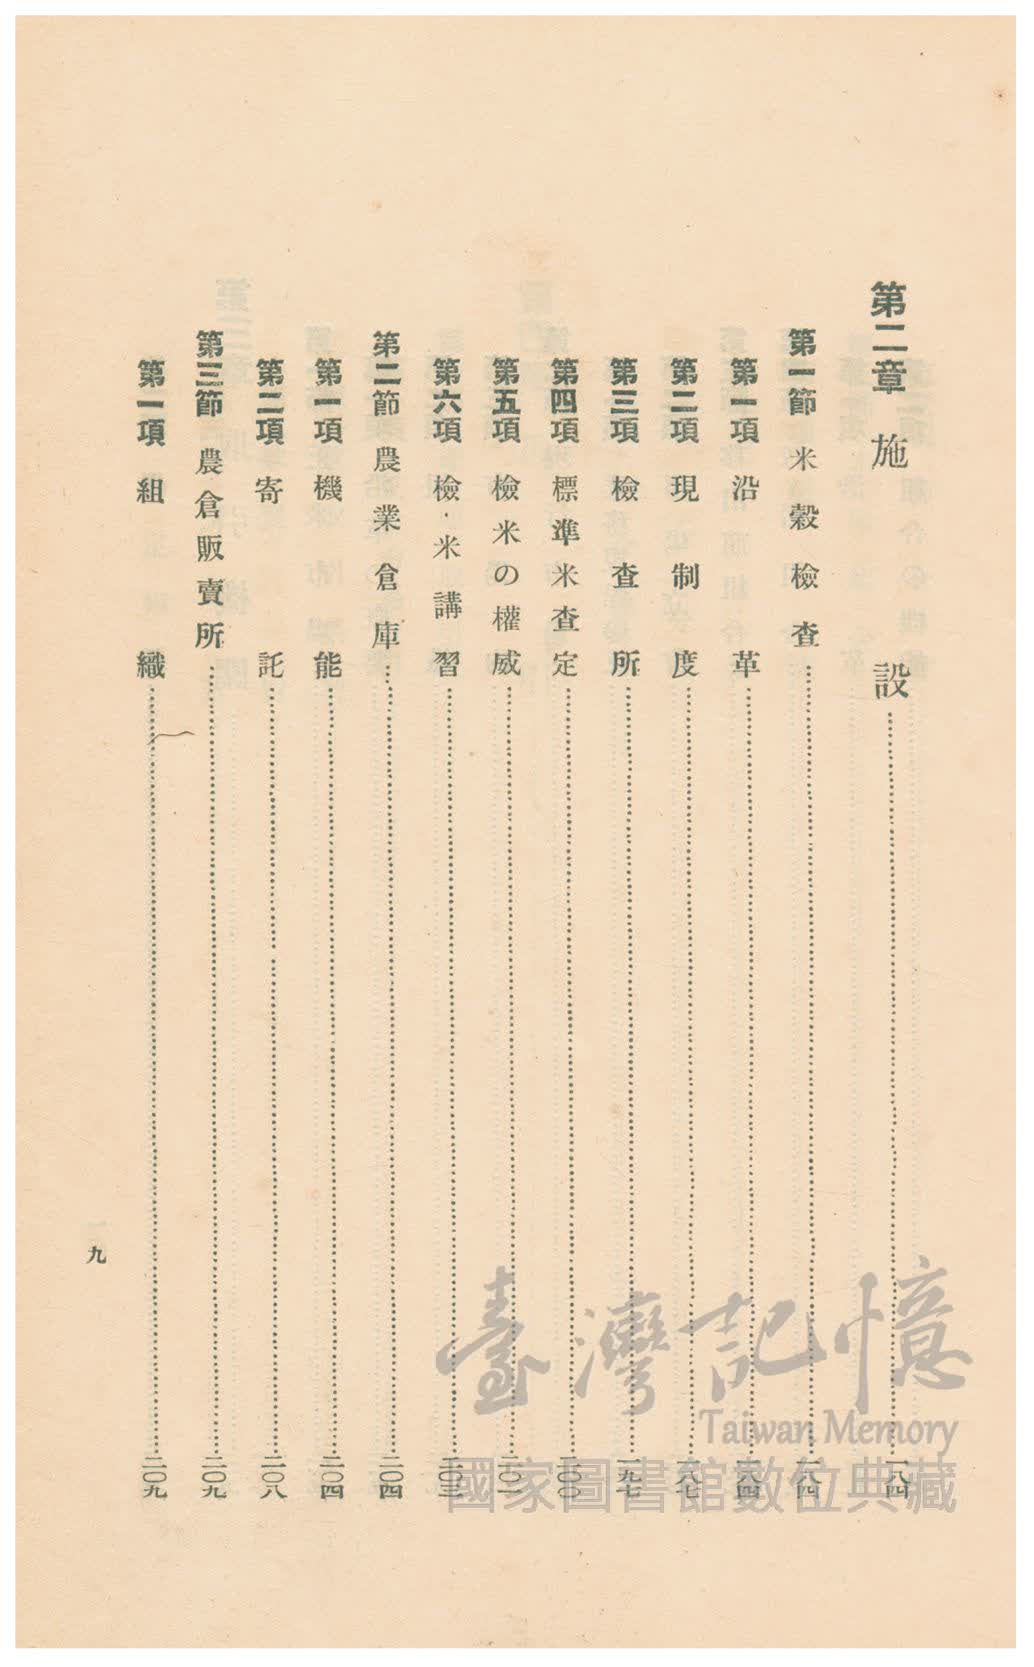 第二章 施設……一八四
第一節 米穀檢查……一八四
第一項 沿革……一八四
第二項 現制度……一八七
第三項 檢查所……一九七
第四項 標準米查定……二〇〇
第五項 檢米の權威……二〇一
第六項 檢·米講習……二〇三
第二節 農業倉庫……二〇四
第一項 機能……二〇四
第二項 寄託……二〇八
第三節 農倉販賣所……二〇九
第一項 組織……二〇九
一九
臺灣記憶
Taiwan Memory
國家圖書館數位典藏